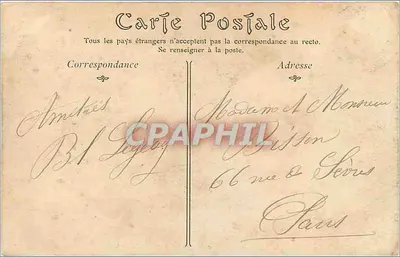 Carte Postale
Tous les pays étrangers n'acceptent pas la correspondance au recto.
Se renseigner à la poste.
Correspondance
Adresse
Amitiés
Madame et Monsieur
Bisson
66 rue de Sèvres
Paris
CPAPHIL